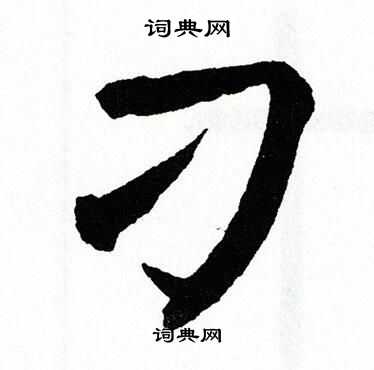 词典网
刁
词典网